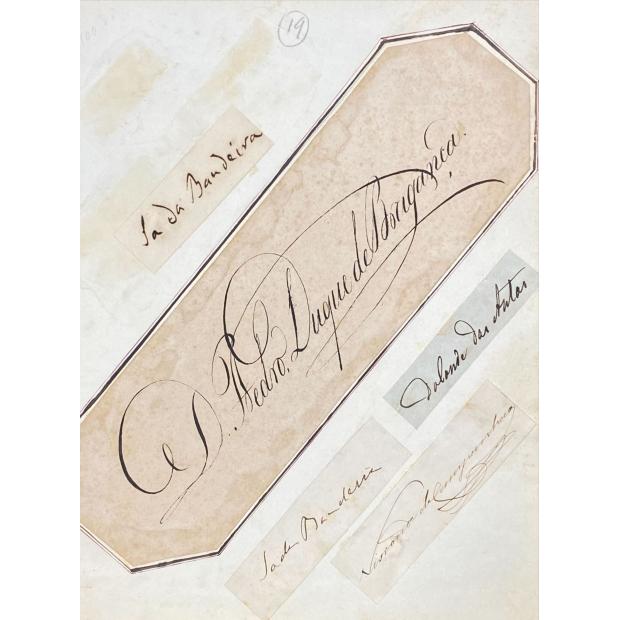 19
Sa da Bandeira
D. Pedro, Duque de Bragança.
das Antas
Sa da Bandeira
Visconde de